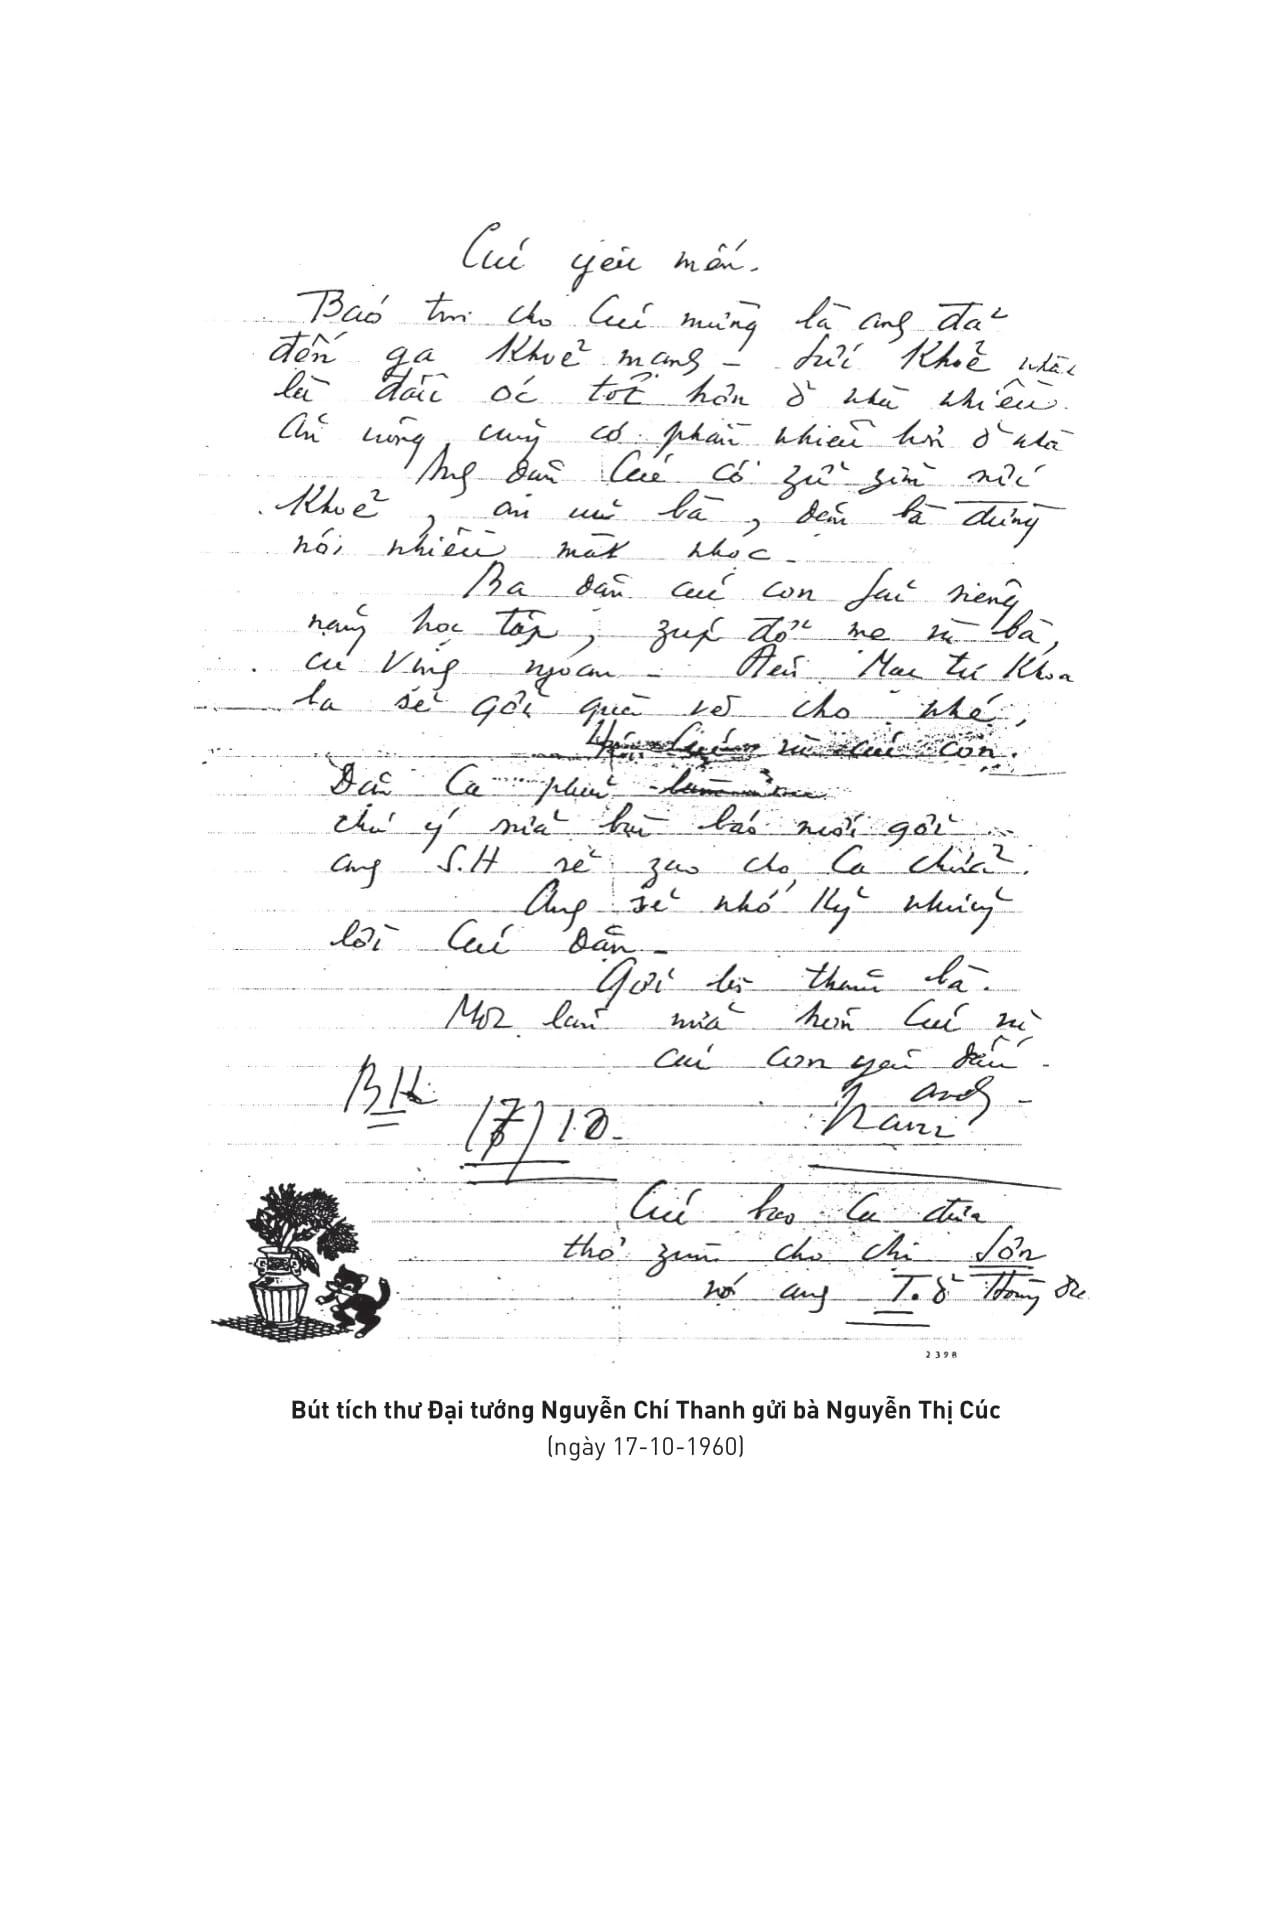 Cúc yêu mến.
Báo tin cho Cúc mừng là ang đã
đến ga khoẻ mạng – sức khoẻ nhất
là đầu óc tốt hơn ở nhà nhiều.
Ăn uống cũng có phần nhiều hơn ở nhà
Ang dặn Cúc cố zữ zìn sức
khoẻ, ăn ngủ, đêm là đừng
nói nhiều mất nhọc –
Ba dặn các con fải siêng
năng học tập, zúp đỡ mẹ và bà,
cu Vịng ngoan – Đến Mạc tư Khoa
ba sẽ gởi quà về cho nhé,
và các con.
Dặn Ca phải
chú ý sửa bài báo mới gởi
ang S.H sẽ zao cho Ca chữa.
Ang sẽ nhớ kỹ những
lời Cúc dặn –
Gởi lời thăm bà.
Một lần nữa hôn Cúc và
các con yêu dấu –
ang –
BK
17/10 –
Cúc bảo Ca đưa
thơ zùm cho chị Sôn
vợ ang T. ở Hàng
2398
Bút tích thư Đại tướng Nguyễn Chí Thanh gửi bà Nguyễn Thị Cúc
(ngày 17-10-1960)